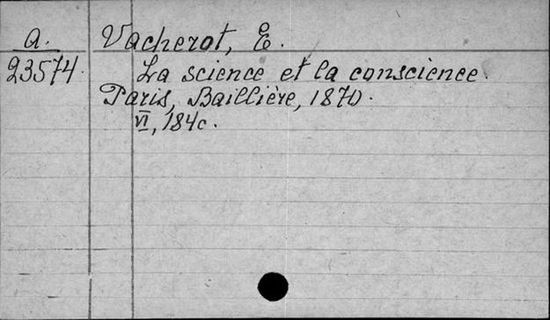 A. Vacherot, E.
23574 La science et la conscience.
Paris, Baillière, 1870.
VI, 184c.